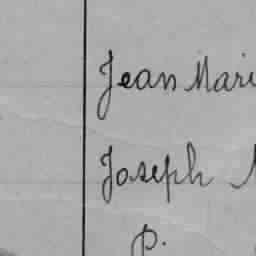 Jean Mari
Joseph
P.